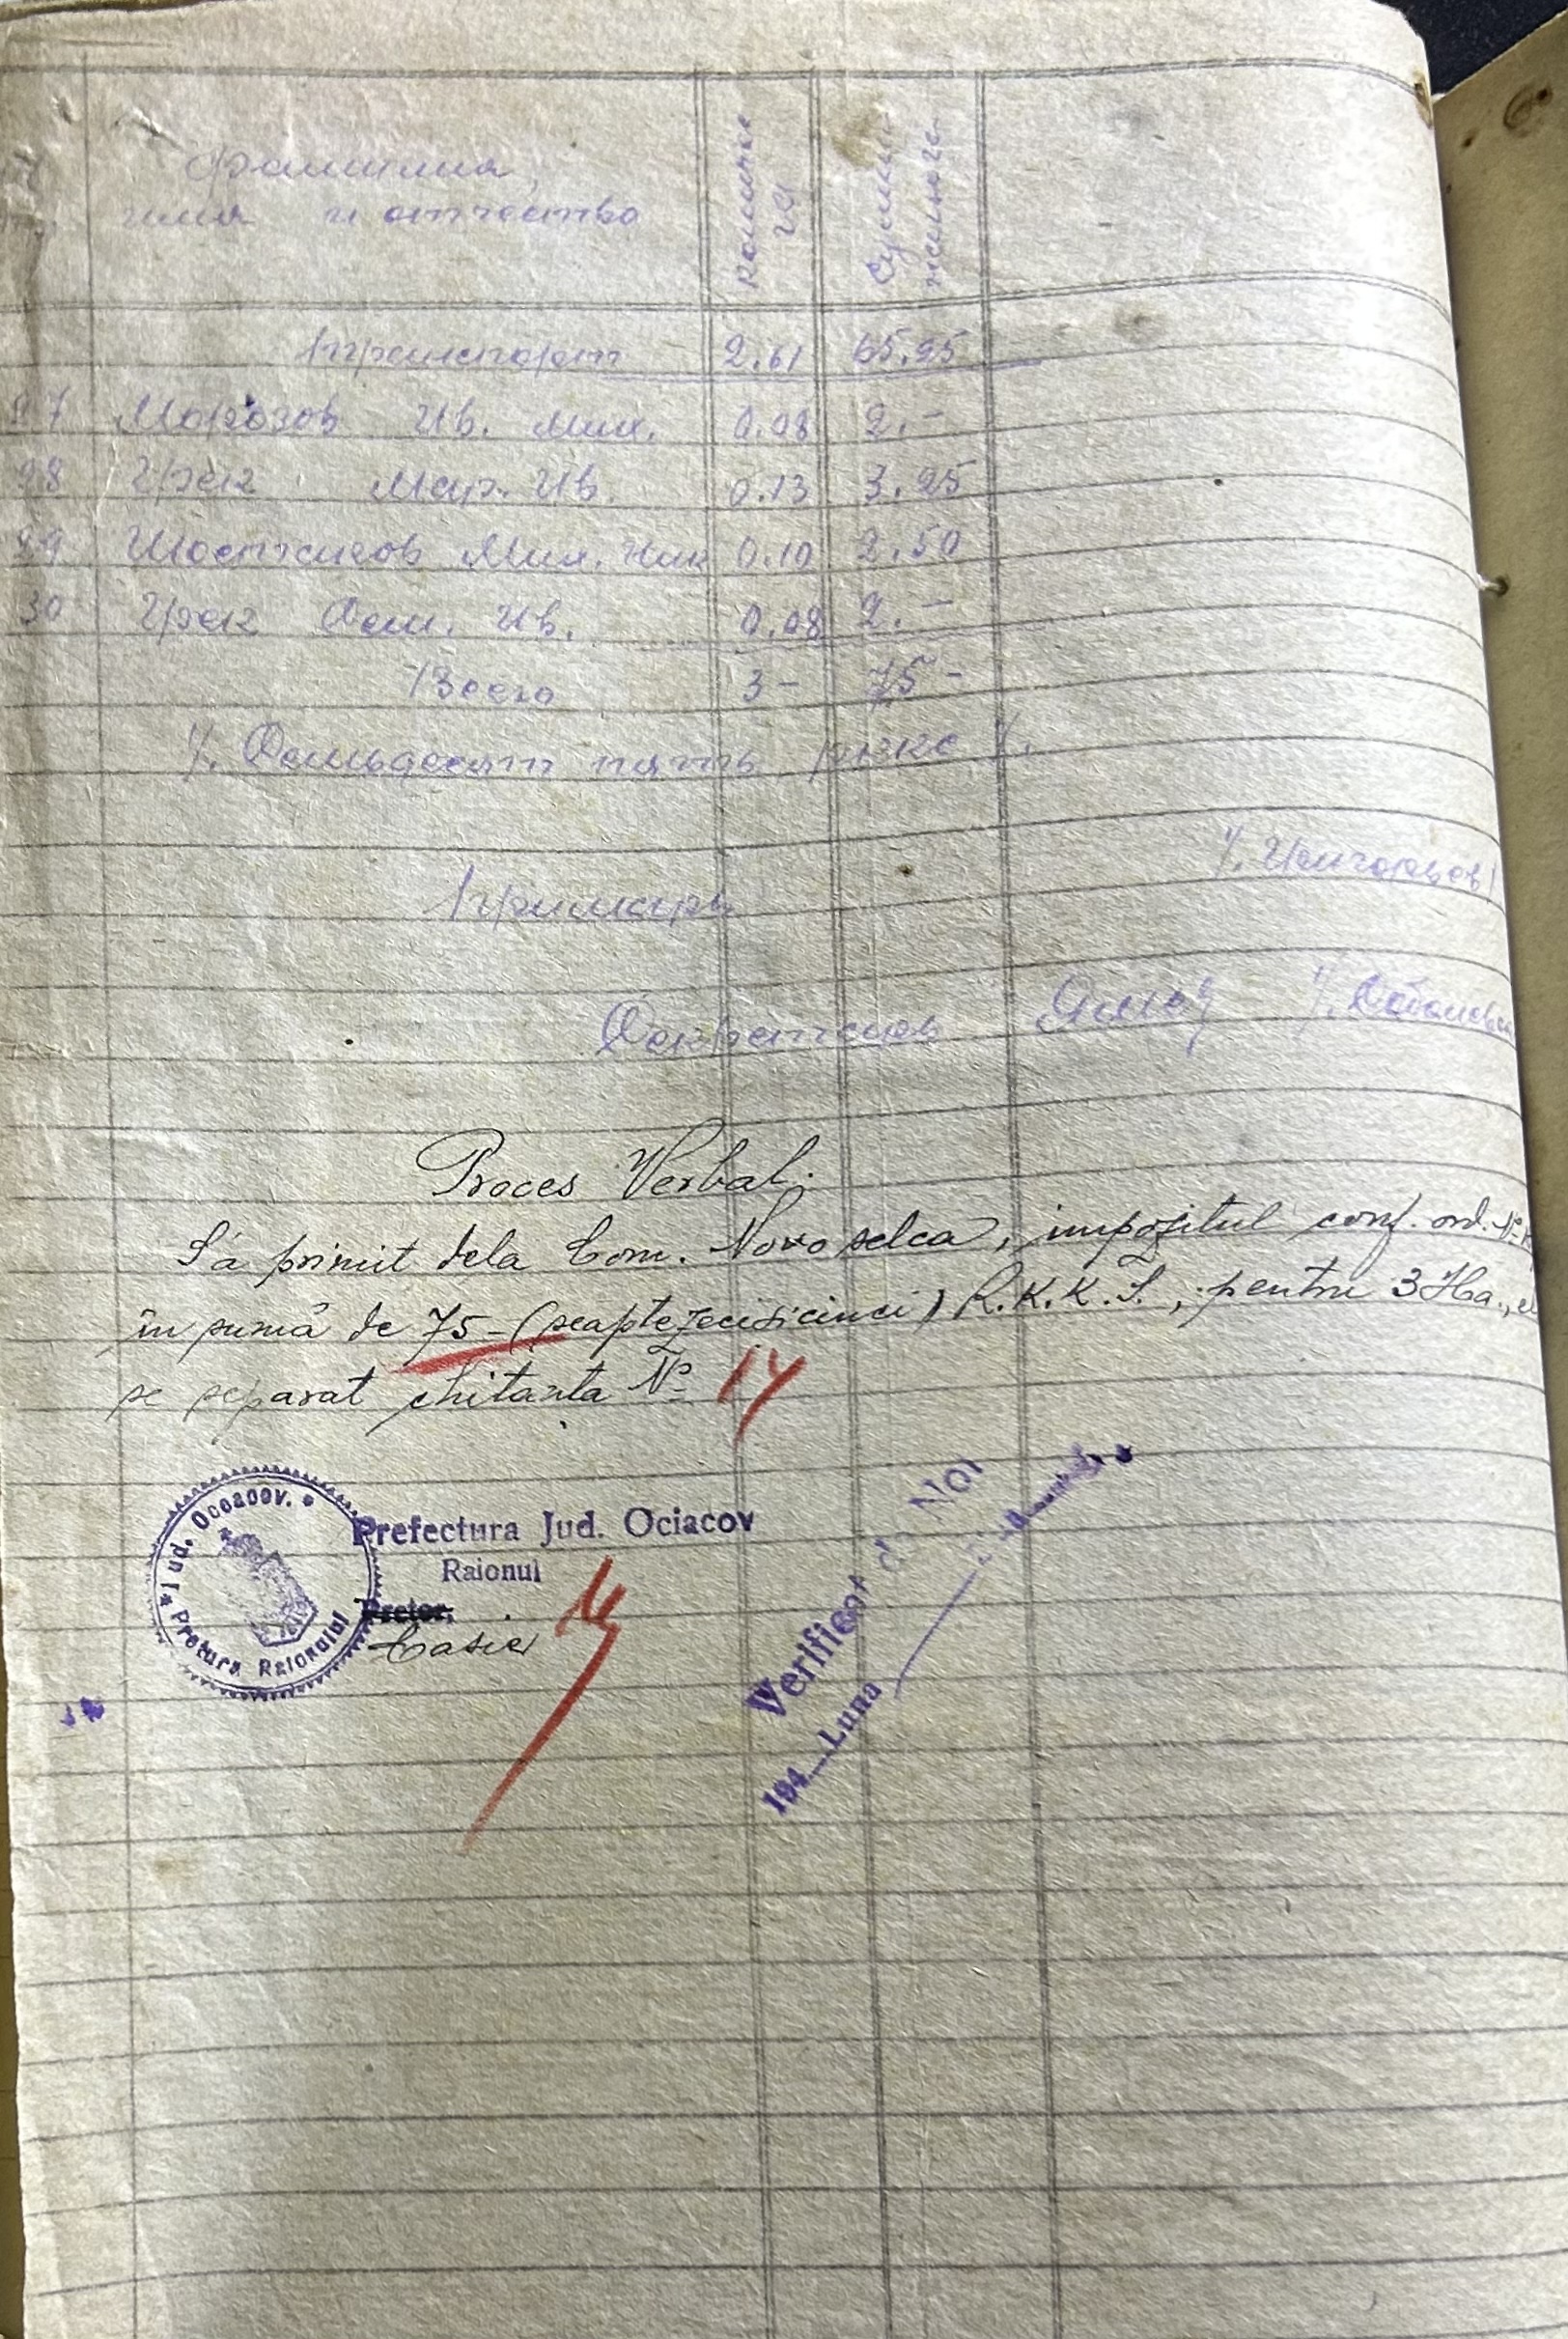 фамилия,
имя и отчество
колич.
га
Сумма
налога
Транспорт 2.61 65.25
27 Морозов Ив. Мих. 0.08 2.-
28 Грек Мар. Ив. 0.13 3.25
29 Шостаков Мих. Ник 0.10 2.50
30 Грек Сем. Ив. 0.08 2.-
Всего 3- 75-
/. Семьдесят пять /.
Примарь
Секретарь
Proces Verbal.
S'a primit dela Com. Novoselca, impozitul conf. ord. №
în sumă de 75-(șaptezecișicinci) R.K.K.S., pentru 3 Ha.,
se separat chitanta № 14
Jud. Oceacov.
Pretura Raionului
Prefectura Jud. Ociacov
Raionul
Pretor,
Casier
Verificat de Noi
194 Luna